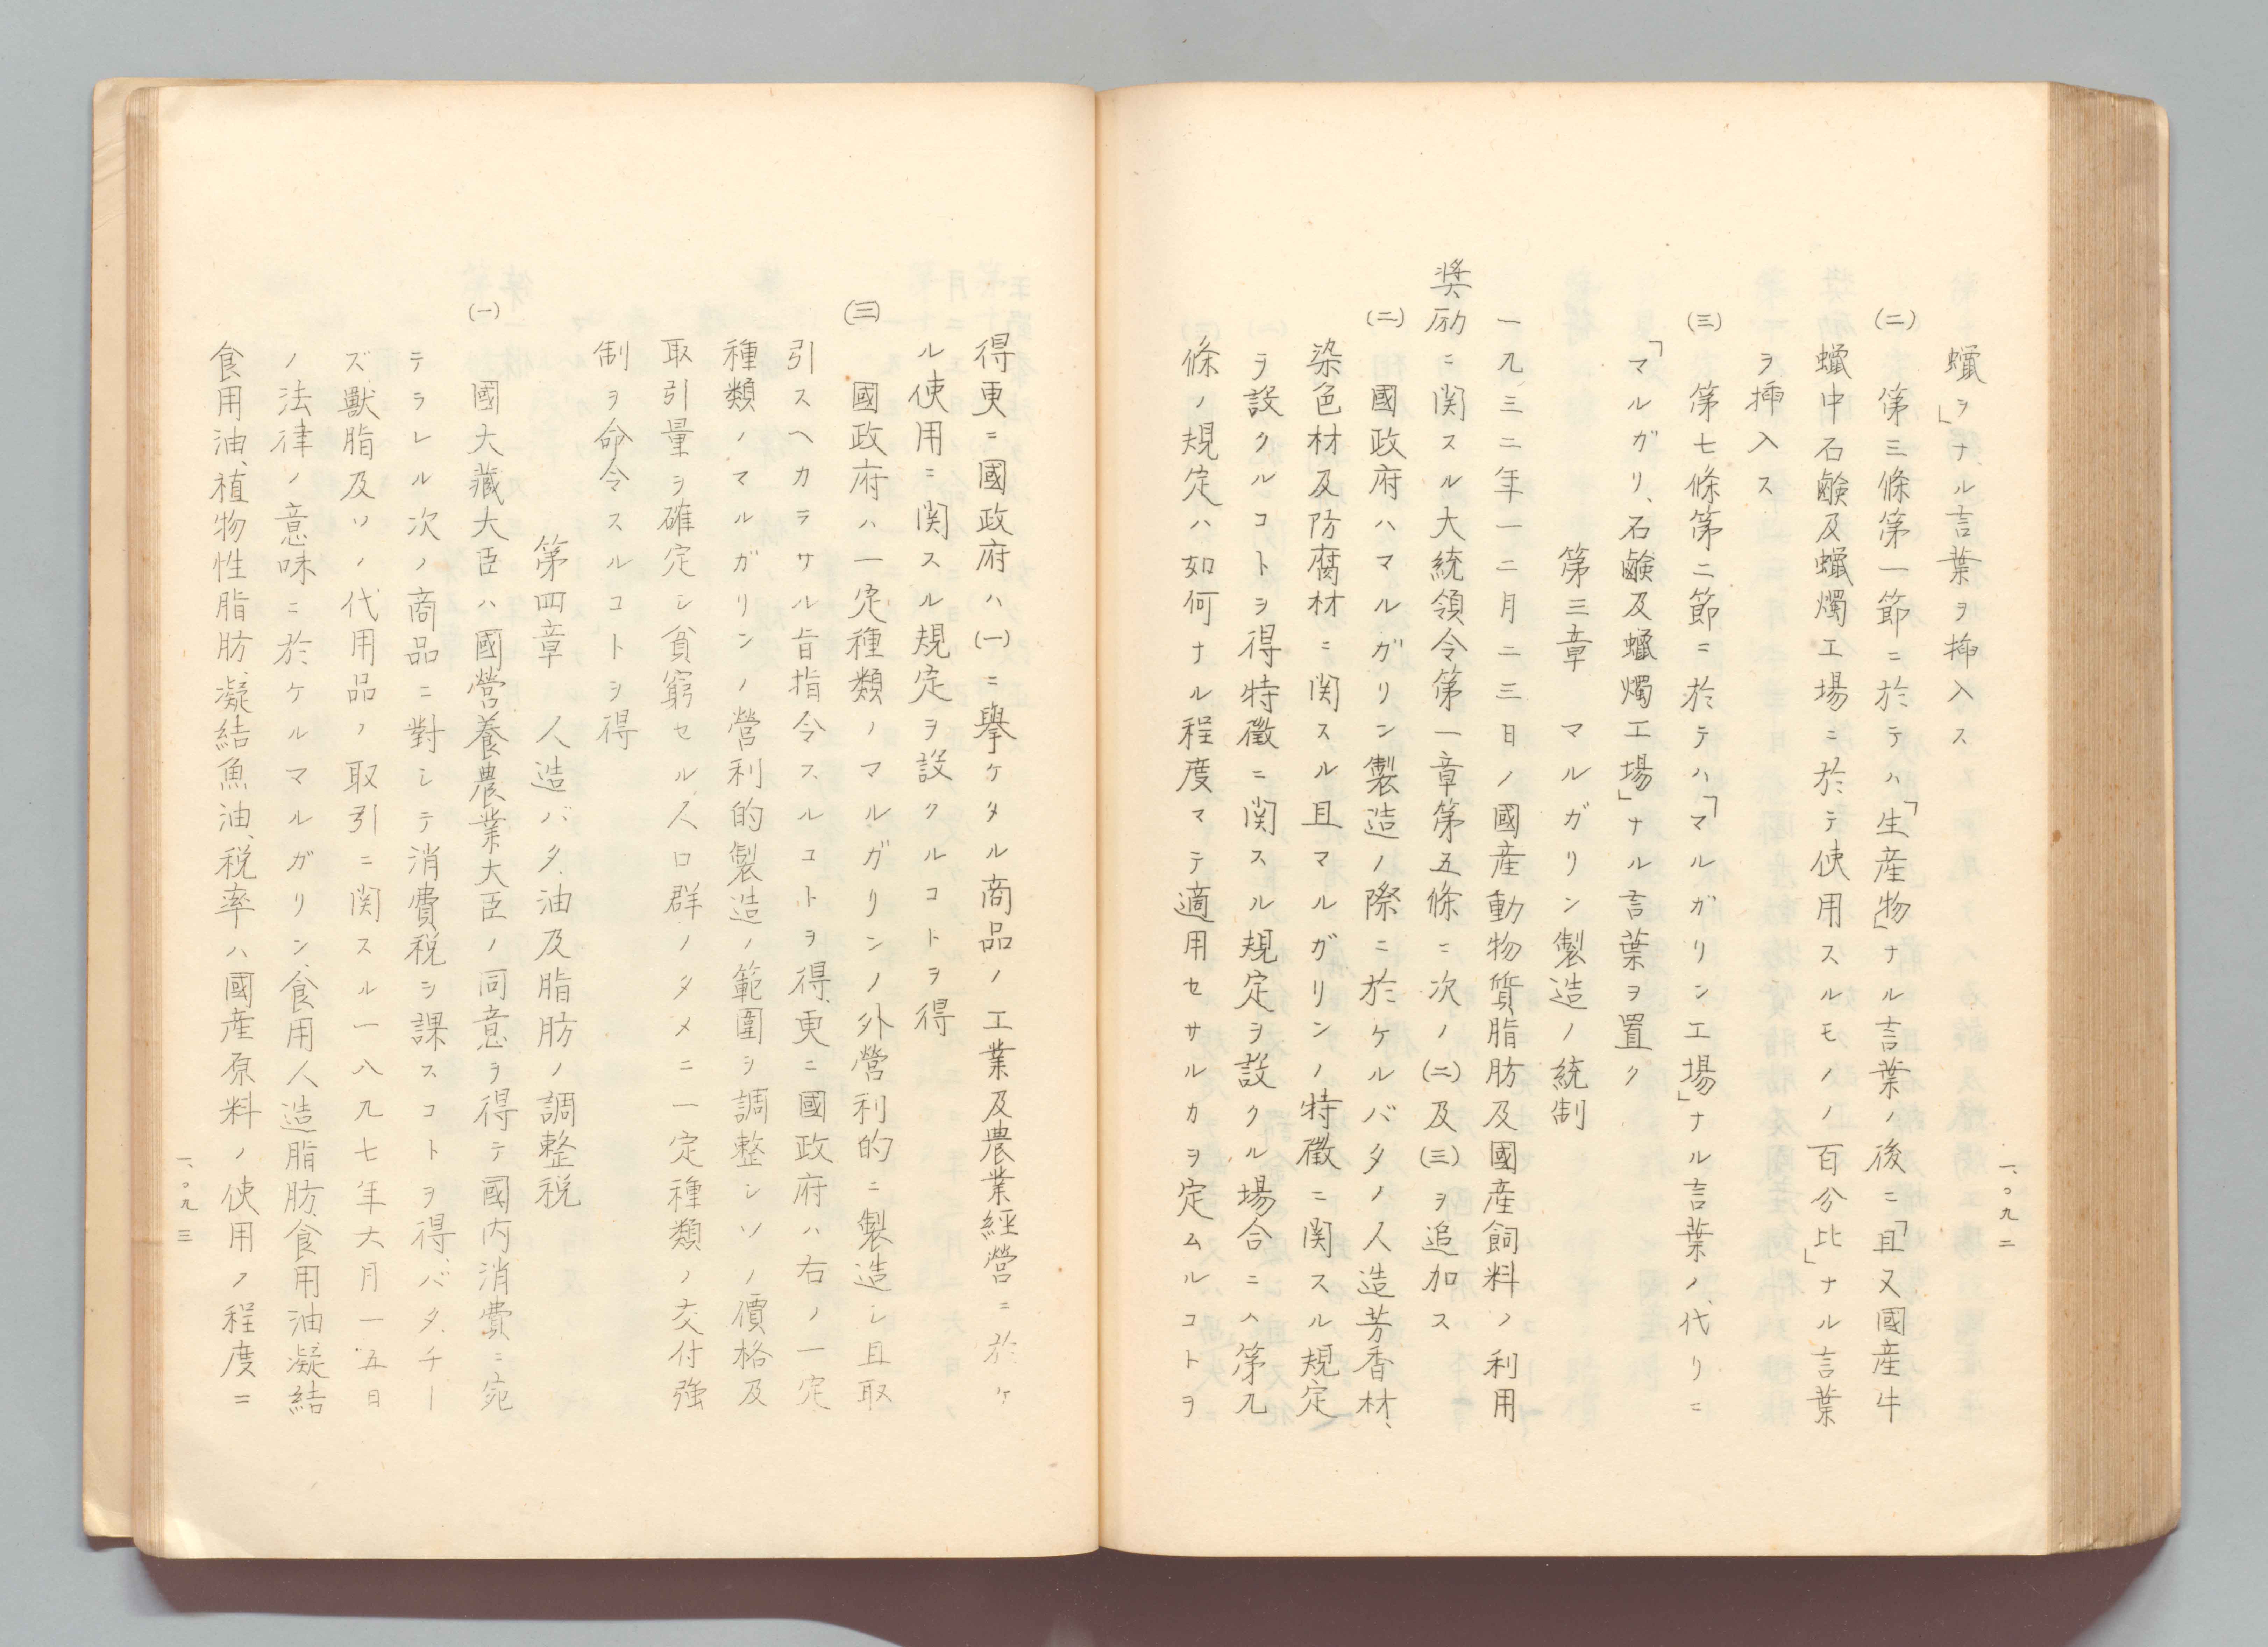 蠟ヲ」ナル言葉ヲ挿入ス
(二)　第三條第一節ニ於テハ「生産物」ナル言葉ノ後ニ「且又國産牛
蠟中石鹸及蠟燭工場ニ於テ使用スルモノノ百分比」ナル言葉
ヲ挿入ス
(三)　第七條第二節ニ於テハ「マルガリンエ場」ナル言葉ノ代リニ
「マルガリ、石鹸及蠟燭工場」ナル言葉ヲ置ク
第三章　マルガリン製造ノ統制
一九三二年一二月二三日ノ國産動物質脂肪及國産飼料ノ利用
奨励ニ関スル大統領令第一章第五條ニ次ノ(二)及(三)ヲ追加ス
(二)　國政府ハマルガリン製造ノ際ニ於ケルバタノ人造芳香材、
染色材及防腐材ニ関スル且マルガリンノ特徴ニ関スル規定
ヲ設クルコトヲ得特徴ニ関スル規定ヲ設クル場合ニハ第九
條ノ規定ハ如何ナル程度マテ適用セサルカヲ定ムルコトヲ
一、〇九二
得更ニ國政府ハ(一)ニ擧ケタル商品ノ工業及農業經營ニ於ケ
ル使用ニ関スル規定ヲ設クルコトヲ得
(三)　國政府ハ一定種類ノマルガリンノ外營利的ニ製造シ且取
引スヘカラサル旨指令スルコトヲ得、更ニ國政府ハ右ノ一定
種類ノマルガリンノ營利的製造ノ範圍ヲ調整シソノ價格及
取引量ヲ確定シ貧窮セル人口群ノタメニ一定種類ノ交付強
制ヲ命令スルコトヲ得
第四章　人造バタ、油及脂肪ノ調整税
(一)　國大藏大臣ハ國營養農業大臣ノ同意ヲ得テ國内消費ニ宛
テラレル次ノ商品ニ對シテ消費税ヲ課スコトヲ得、バタチー
ズ獸脂及ソノ代用品ノ取引ニ関スル一八九七年六月一五日
ノ法律ノ意味ニ於ケルマルガリン、食用人造脂肪、食用油、凝結
食用油、植物性脂肪、凝結魚油、税率ハ國産原料ノ使用ノ程度ニ
一、〇九三